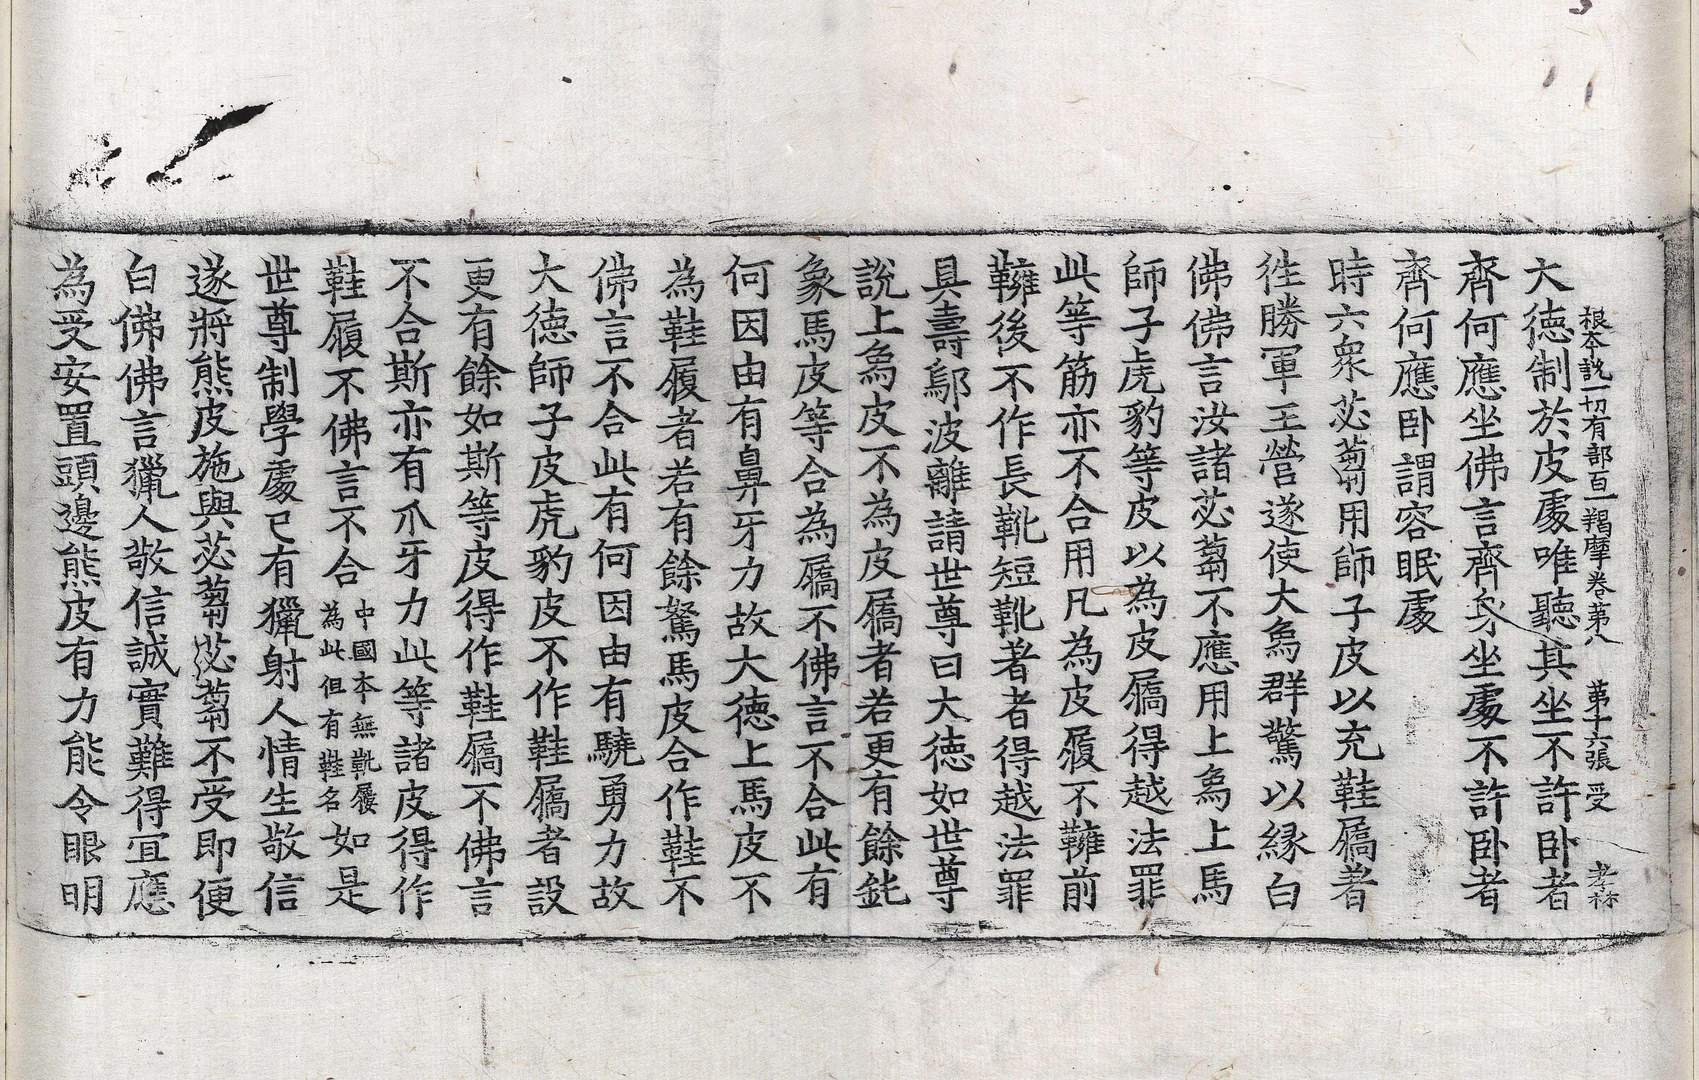 根本說一切有部百一羯摩卷第八　第十六張　受　孝林
大德制於皮處唯聽其坐不許卧者
齊何應坐佛言齊身坐處不許卧者
齊何應卧謂容眠處
時六衆苾蒭用師子皮以充鞋屩著
往勝軍王營遂使大烏群驚以緣白
佛佛言汝諸苾蒭不應用上烏上馬
師子虎豹等皮以為皮屩得越法罪
此等筋亦不合用凡為皮履不鞾前
鞾後不作長靴短靴著者得越法罪
具壽鄔波離請世尊曰大德如世尊
說上烏皮不為皮屩者若更有餘鈍
象馬皮等合為屩不佛言不合此有
何因由有鼻牙力故大德上馬皮不
為鞋履者若有餘駑馬皮合作鞋不
佛言不合此有何因由有驍勇力故
大德師子皮虎豹皮不作鞋屩者設
更有餘如斯等皮得作鞋屩不佛言
不合斯亦有爪牙力此等諸皮得作
鞋履不佛言不合中國本無靴屨為此但有鞋名如是
世尊制學處已有獵射人情生敬信
遂將熊皮施與苾蒭苾蒭不受即便
白佛佛言獵人敬信誠實難得宜應
為受安置頭邊熊皮有力能令眼明